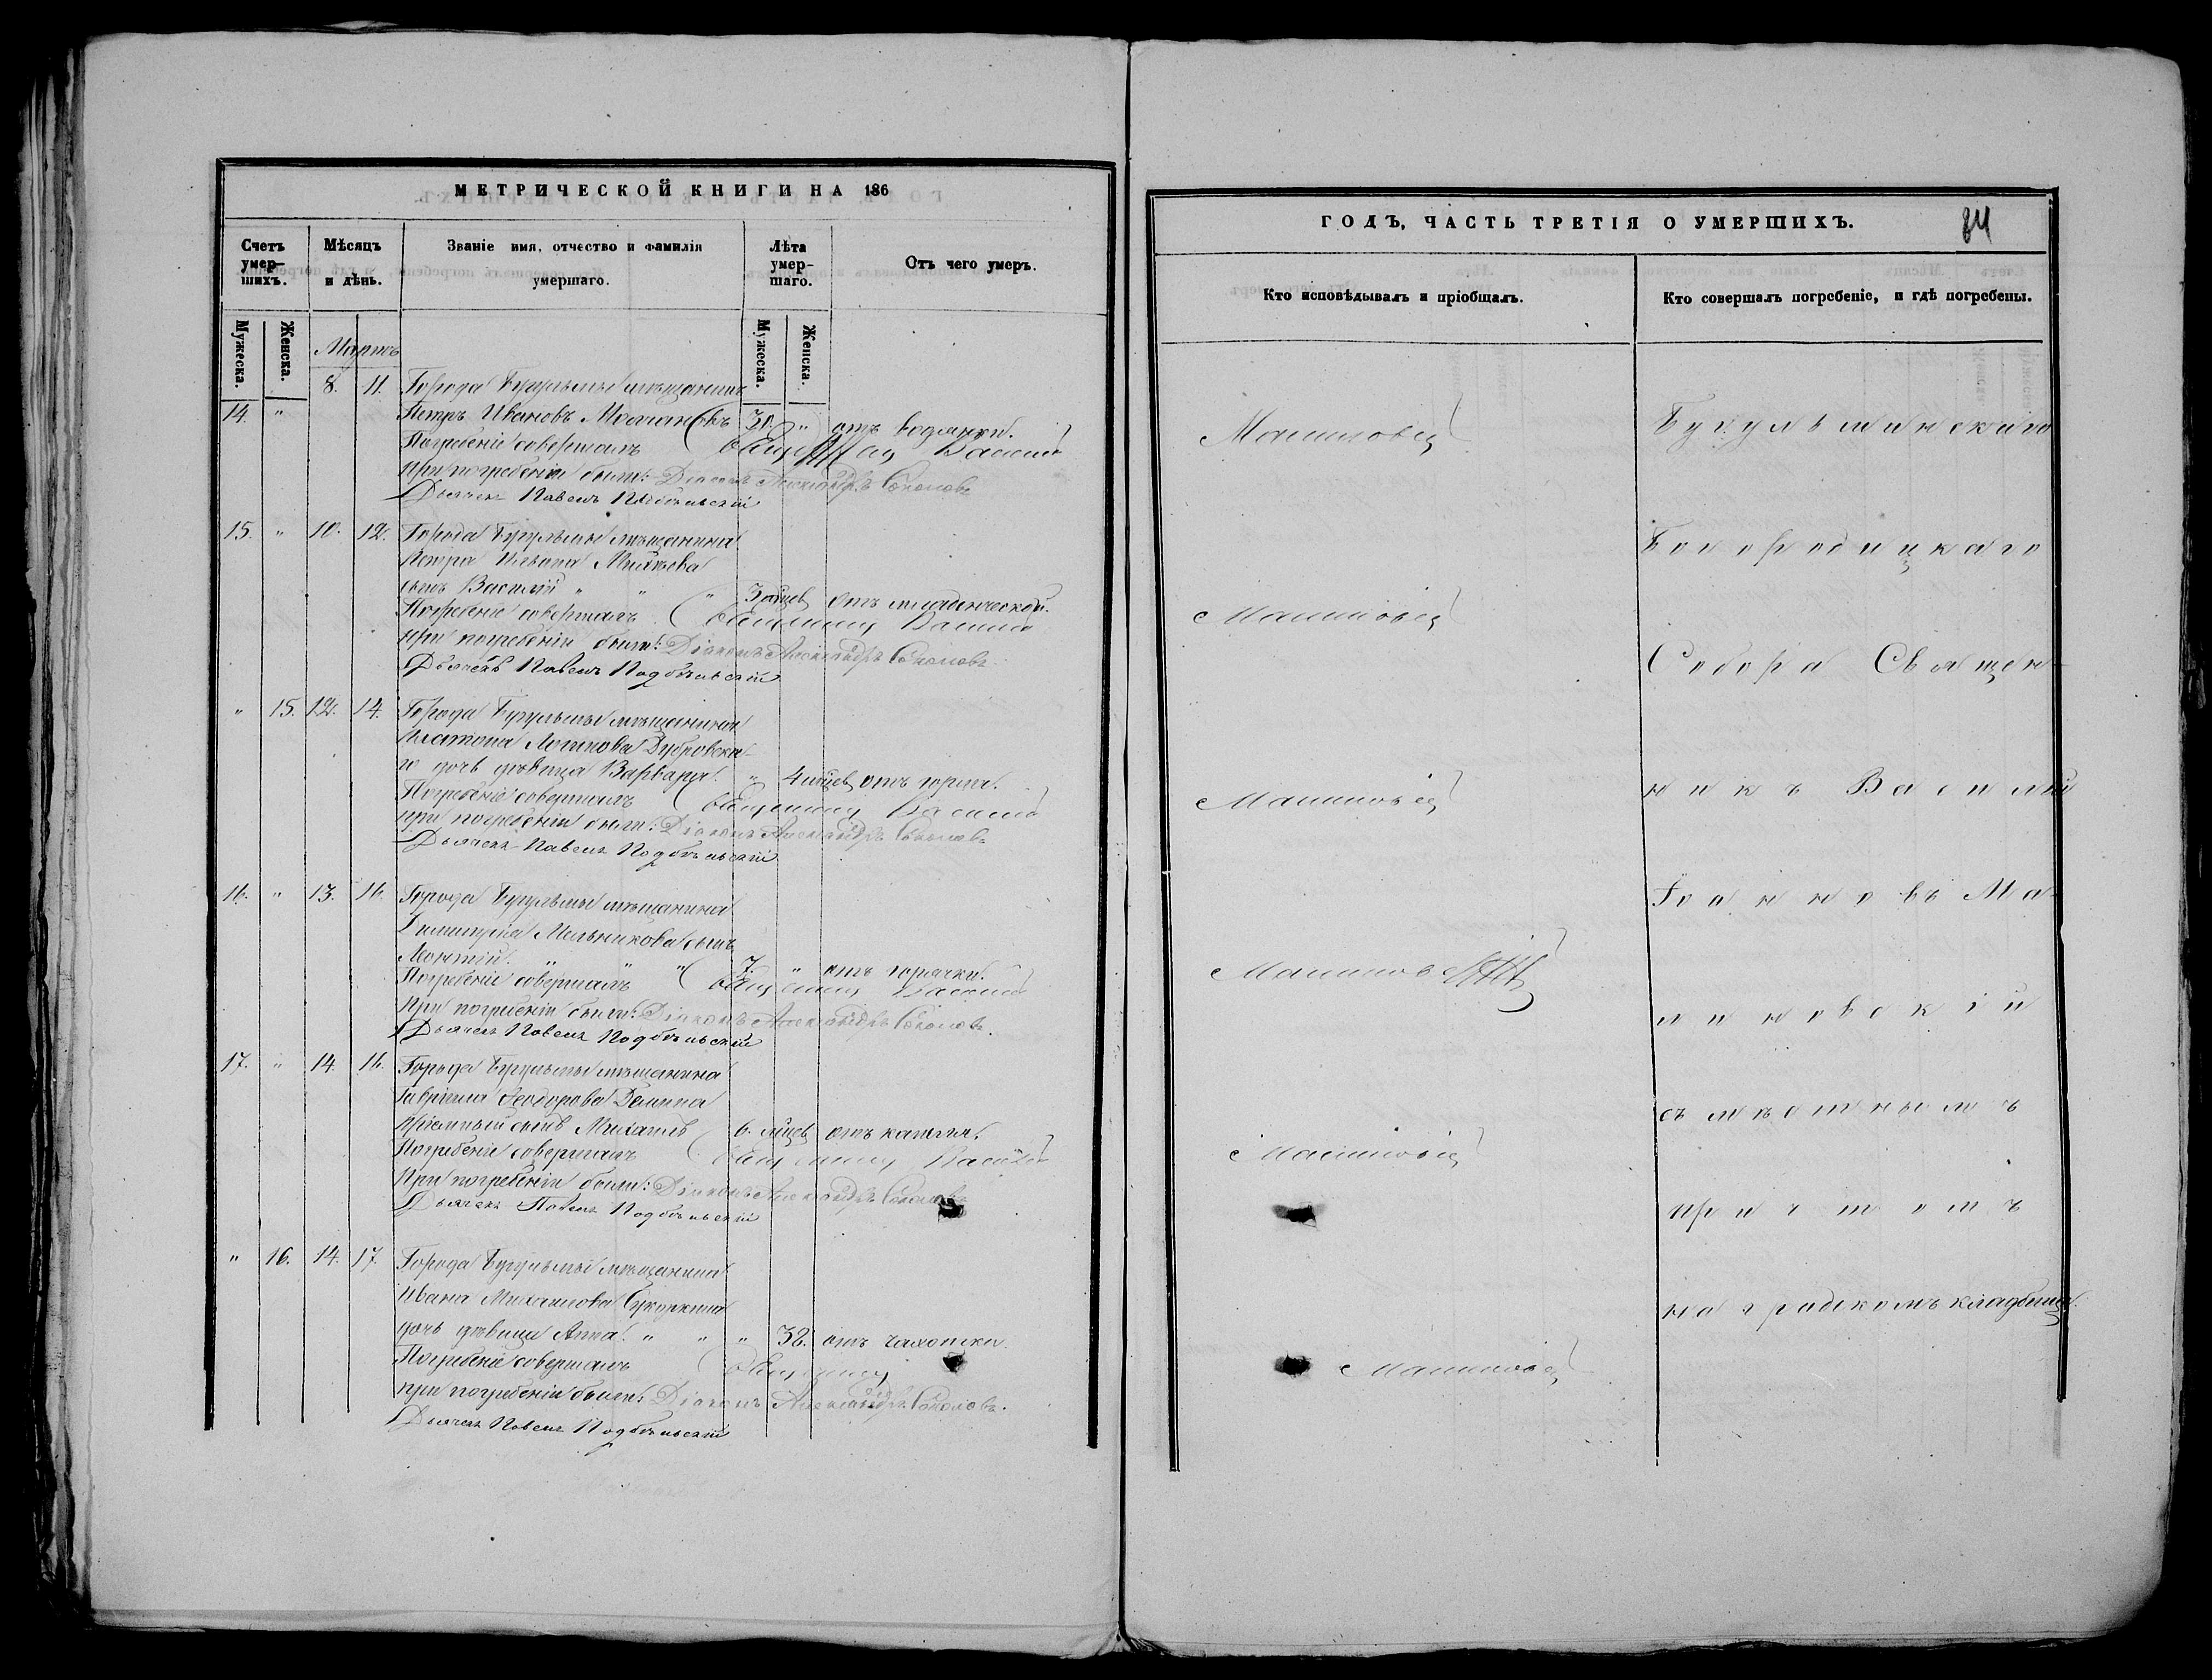 МЕТРИЧЕСКОЙ КНИГИ НА 186
Счетъ умер-шихъ.
Мѣсяцъ и день.
Званіе имя, отчество и фамилія умершаго.
Лѣта умер-шаго.
Отъ чего умеръ.
Мужеска.
Женска.
Мужеска.
Женска.
Мартъ
8. 11. Города Бугульмы мѣщанинъ
14. " Петръ Ивановъ " отъ водянки.
Погребеніе совершалъ Священникъ Василій
При погребеніи были: Діаконъ Александръ Соколовъ
Дьячекъ Павелъ Подбѣльскій
15. " 10. 12. Города Бугульмы мѣщанина
Петра
сынъ Василій " " " 3 мѣсец. отъ младенческой.
Погребеніе совершалъ Священникъ Василій
При погребеніи были: Діаконъ Александръ Соколовъ
Дьячекъ Павелъ Подбѣльскій
" 15. 12. 14. Города Бугульмы мѣщанина
Платона Логинова Дубровска-
го дочь дѣвица Варвара. " 4 мѣсец. отъ горла.
Погребеніе совершалъ Священникъ Василій
При погребеніи были: Діаконъ Александръ Соколовъ
Дьячекъ Павелъ Подбѣльскій
16. " 13. 16. Города Бугульмы мѣщанина
Димитрія Мельникова сынъ
Леонтій. " " " 7. " отъ горячки.
Погребеніе совершалъ Священникъ Василій
При погребеніи были: Діаконъ Александръ Соколовъ.
Дьячекъ Павелъ Подбѣльскій
17. " 14. 16. Города Бугульмы мѣщанина
Гавріила Ѳеодорова
пріемный сынъ Михаилъ 6. мѣсец. отъ кашля.
Погребеніе совершалъ Священникъ Василій
При погребеніи были: Діаконъ Александръ Соколовъ
Дьячекъ Павелъ Подбѣльскій
" 16. 14. 17. Города Бугульмы мѣщанина
Ивана Михайлова
дочь дѣвица Анна. " " " 38. отъ чахотки.
Погребеніе совершалъ Священникъ
При погребеніи были: Діаконъ Александръ Соколовъ.
Дьячекъ Павелъ Подбѣльскій
ГОДЪ, ЧАСТЬ ТРЕТІЯ О УМЕРШИХЪ.
84
Кто исповѣдывалъ и пріобщалъ.
Кто совершалъ погребеніе, и гдѣ погребены.
Малиновскій
Малиновскій
Малиновскій
Малиновскій
Малиновскій
Малиновскій
Бугульминскаго
Богородицкаго
Собора Священ-
никъ Василій
Іоанновъ Ма-
линовскій
съ мѣстнымъ
причтомъ
на градскомъ кладбищѣ.